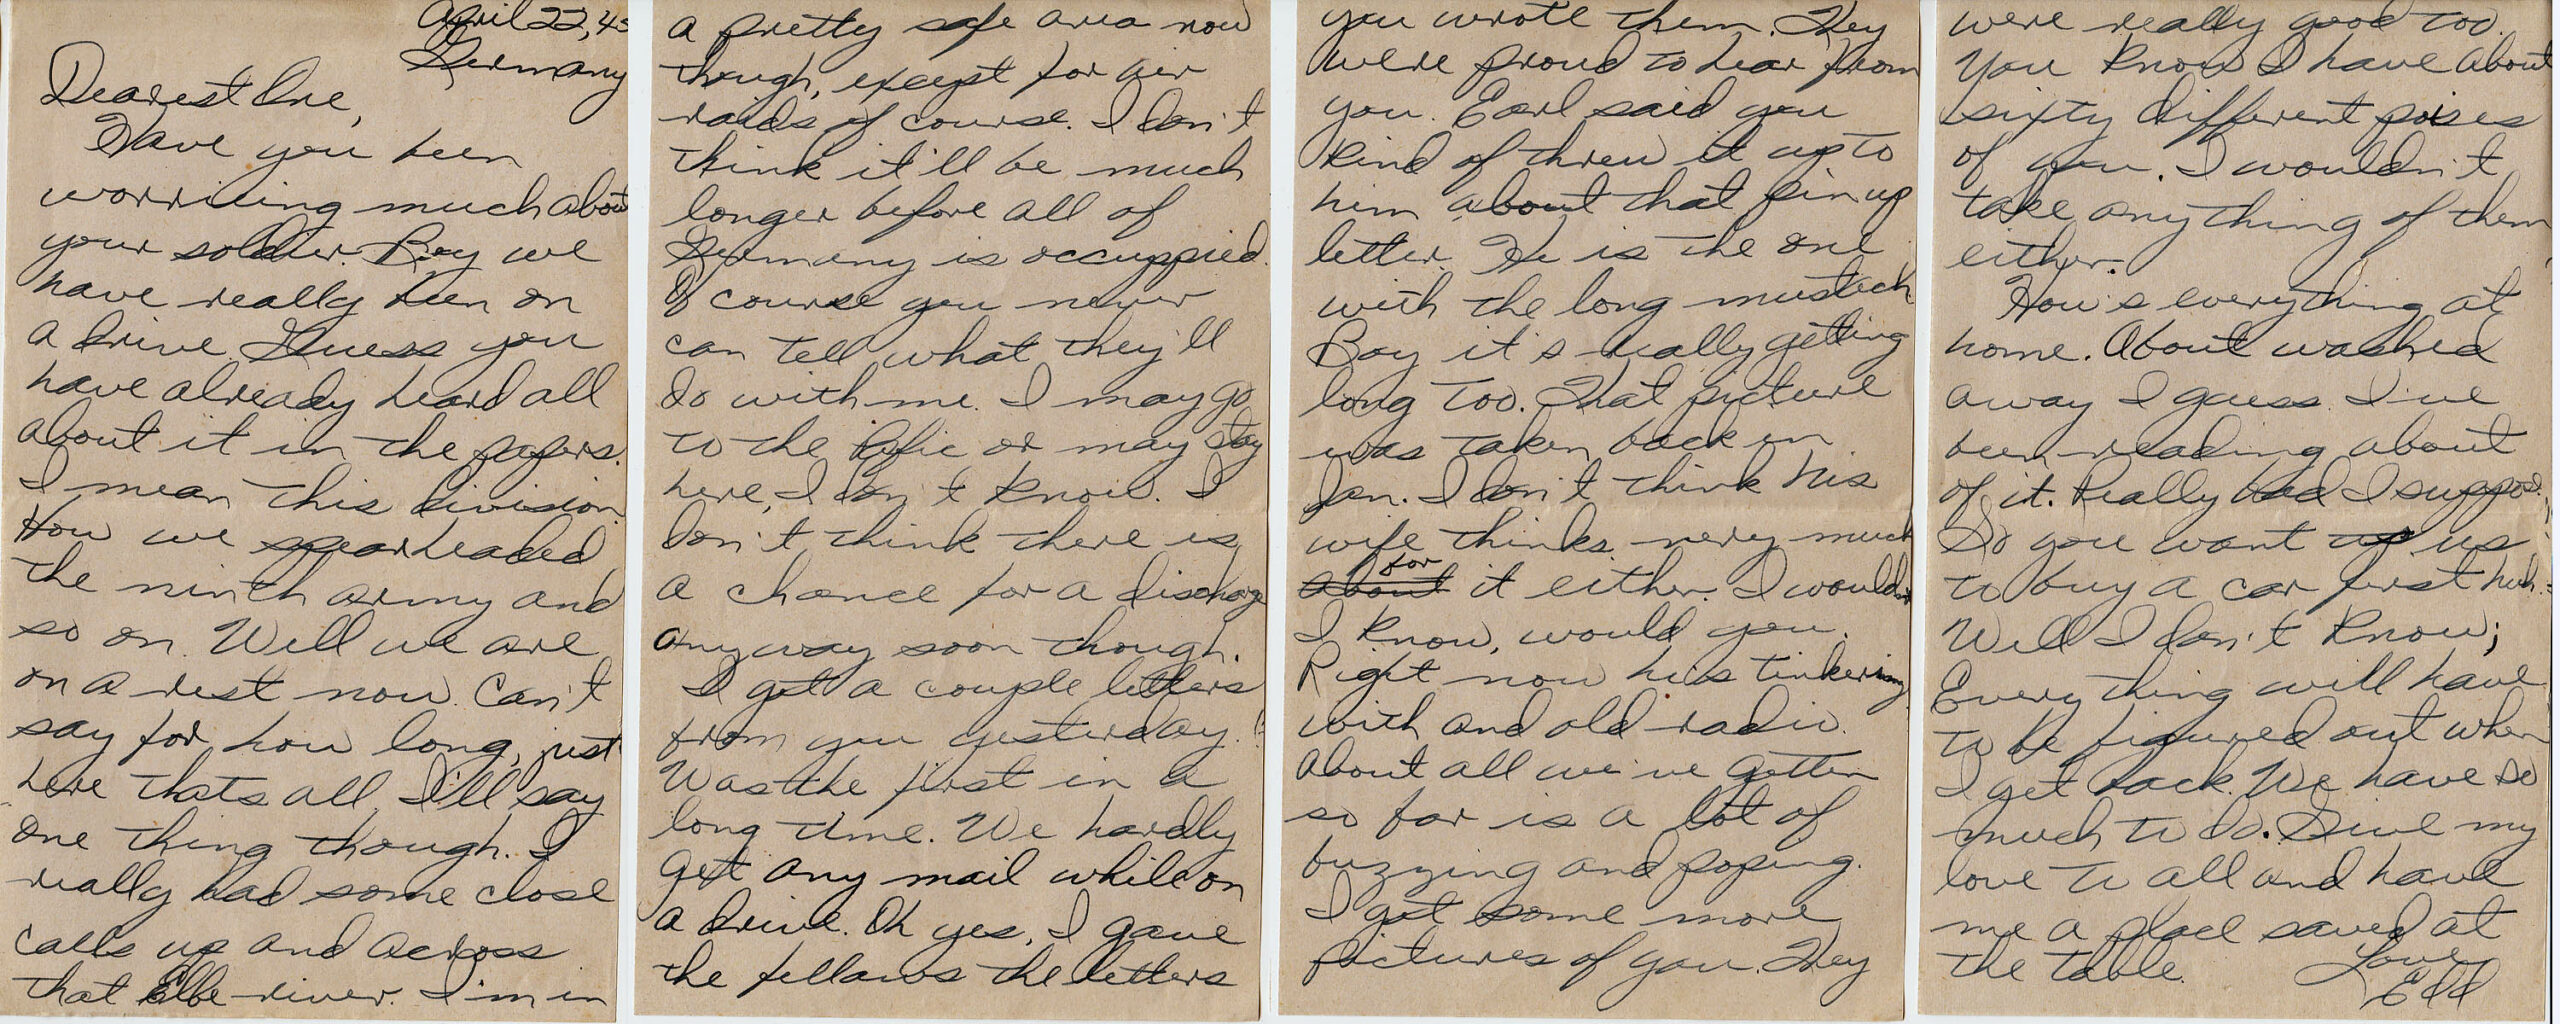 April 22, 45
Germany
Dearest One,
Have you been
worriing much about
your soldier. Boy we
have really been on
a drive. Guess you
have already heard all
about it in the papers.
I mean this division.
How we spearheaded
the ninth army and
so on. Well we are
on a rest now. Can't
say for how long, just
here thats all. I'll say
one thing though. I
really had some close
calls up and across
that Elbe river. I'm in
a pretty safe area now
though, except for air
raids of course. I don't
think it'll be much
longer before all of
Germany is occuppied.
Of course you never
can tell what they'll
do with me. I may go
to the Pafic or may stay
here, I don't know. I
don't think there is
a chance for a discharge
anyway soon though.
I got a couple letters
from you yesterday.
Was the first in a
long time. We hardly
get any mail while on
a drive. Oh yes, I gave
the fellows the letters
you wrote them. They
were proud to hear from
you. Earl said you
kind of threw it up to
him about that pin up
letter. He is the one
with the long mustach
Boy it's really getting
long too. That picture
was taken back in
Jan. I don't think his
wife thinks very much
about for it either. I wouldn't
I know, would you.
Right now he's tinkering
with and old radio.
About all we've gotten
so far is a lot of
buzzing and poping.
I got some more
pictures of you. They
were really good too.
You know I have about
sixty different poises
of you. I wouldn't
take anything of them
either.
How's everything at
home. About washed
away I guess. I've
been reading about
of it. Really bad I suppose.
So you want us
to buy a car first huh.
Well I don't know;
Everything will have
to be figured out when
I get back. We have so
much to do. Give my
love to all and have
me a place saved at
the table.
Love
Edd